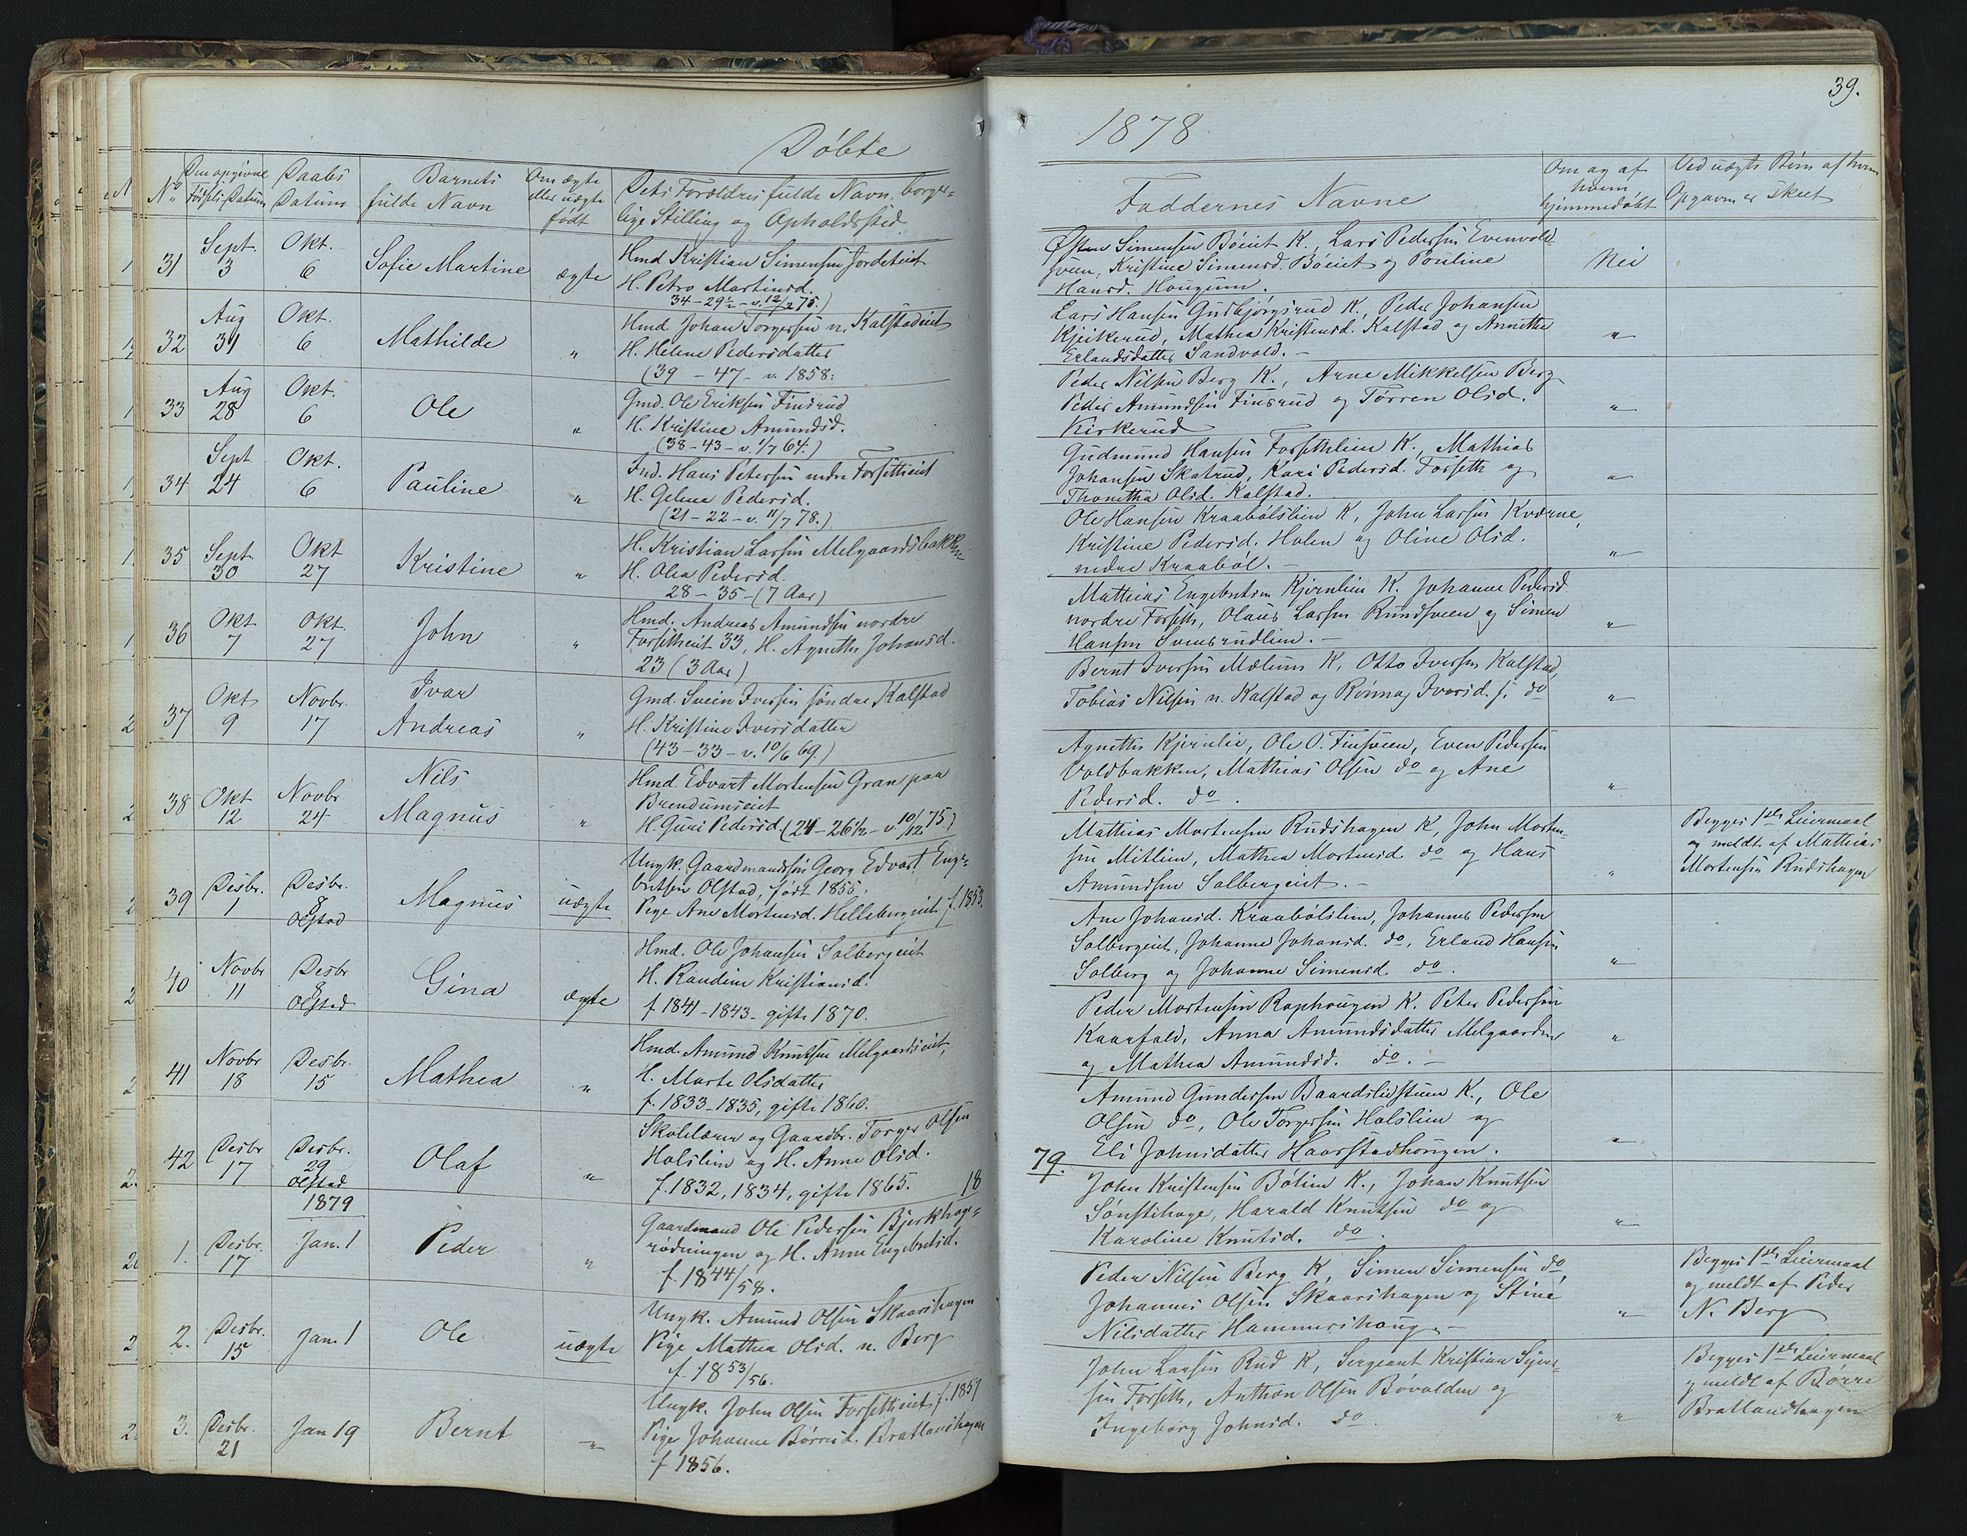 Døbte
No
Den opgivne
Fødsels-Datum
Daabs
Datum
Barnets
fulde Navn
Om ægte
eller uægte
født
Dets Forældres fulde Navn, borger-
lige Stilling og Opholdssted.
31
Sept.
3
Okt.
6
Sofie Martine
ægte
Hmd Kristian Simensen Jordeteiet
H. Petro Martinsd.
34-29½-v.12/2 75.)
32
Aug
31
Okt.
6
Mathilde
"
Hmd. Johan Torgersen n. Kalstadeiet
H. Helene Pedersdatter
(39 - 47 - v. 1858.
33
Aug
28
Okt.
6
Ole
"
Gmd. Ole Eriksen Finsrud
H. Kristine Amundsd.
(38-43-v. 1/7 64.)
34
Sept.
24
Okt.
6
Pauline
"
Ind. Hans Petersen nedre Forsetheiet
H. Gelene Pedersd.
(21-22-v. 11/7 78.)
35
Sept.
30
Okt
27
Kristine
"
H. Kristian Larsen Melgaardsbakken
H. Olea Pedersd.
28-35-(7 Aar)
36
Okt
7
Okt.
27
John
"
Hmd. Andreas Amundsen nordre
Forsetheiet 33, H. Agnethe Johansd.
23 (3 Aar)
37
Okt
9
Novbr.
17
Ivar
Andreas
"
Gmd. Svein Iversen søndre Kalstad
H. Kristine Iversdatter
(43-33-v. 10/6 69.)
38
Okt
12
Novbr
24
Nils
Magnus
"
Hmd. Edvart Mortensen Gran paa
Brendumseiet
H. Guri Pedersd. (24-26½-v. 10/12 75)
39
Desbr.
1
Desbr.
8
Olstad
Magnus
uægte
Ungk. Gaardmandssøn Georg Edvart Enge-
bretsen Olstad, født 1855.
Pige Ane Mortensd. Hellebergeiet f. 1853.
40
Novbr
11
Desbr
8
Olstad
Gina
ægte
Hmd. Ole Johansen Solbergeiet
H. Randine Kristiansd.
f. 1841-1843-gifte 1870.
41
Novbr
18
Desbr.
15
Mathea
"
Hmd. Amund Knutsen Melgaardseiet,
H. Marte Olsdatter
f. 1833-1835, gifte 1860.
42
Desbr
17
Desbr.
29
Olstad
Olaf
"
Skolelærer og Gaardbr. Torger Olsen
Holslien og H. Anne Olsd.
f. 1832, 1834, gifte 1865.
18
1879
1.
Desbr.
17
Jan. 1
Peder
"
Gaardmand Ole Pedersen Bjerkhage-
rødningen og H. Anne Engebretsd.
f. 1844/58.
2.
Desbr.
15
Jan. 1
Ole
uægte
Ungk. Amund Olsen Skaarshagen
Pige Mathea Olsd. n. Berg
f. 1853/56.
3.
Desbr.
21
Jan 19
Bernt
"
Ungk. John Olsen Forsetheiet f. 1851
Pige Johanne Børresd. Bratlandshagen
f 1856.
39.
1878
Faddernes Navne
Om og af
hvem
hjemmedøbt
Ved uægte Børn af hvem
Opgaven er skeet
Østen Simensen Bøeiet K., Lars Pedersen Evenvold-
sveen, Kristine Simensd. Bøeiet og Pauline
Hansd. Hougum.
Nei
Lars Hansen Gudbjørgsrud K, Peder Johansen
Kjeikerud, Mathea Kristensd. Kalstad og Annethe
Erlandsdatter Sandvold. -
"
Peder Nilsen Berg K., Arne Mikkelsen Berg
Peder Amundsen Finsrud og Torren Olsd.
Kirkerud
"
Gudmund Hansen Forsethlien K., Mathias
Johansen Skatrud, Kari Pedersd. Forseth og
Thonetha Olsd. Kalstad.
"
Ole Hansen Kraabølslien K, John Larsen Kværne,
Kristine Pedersd. Holen og Oline Olsd.
nedre Kraabøl. -
"
Mathias Engebretsen Kjernlien K. Johanne Pedersd
nordre Forseth, Olaus Larsen Rundsveen og Simen
Hansen Svensrudlien. -
"
Bernt Iversen Mælum K, Otto Iversen Kalstad,
Tobias Nilsen n. Kalstad og Rønnaug Iversd. s. do
"
Agnethe Kjernlie, Ole O. Finsveen, Even Pedersen
Voldbakken, Mathias Olsen do og Ane
Pedersd. do.
"
Mathias Mortensen Rudshagen K, John Morten-
sen Mitlien, Mathea Mortensd do og Hans
Amundsen Solbergeiet. -
"
Begges 1ste Leiermaal
og meldt af Mathias
Mortensen Rudshagen
Ane Johansd. Kraabølslien, Johannes Pedersen
Solbergeiet, Johanne Johansd. do, Erland Hansen
Solberg og Johanne Simensd. do.
"
Peder Mortensen Raphougen K. Peter Pedersen
Kaarfald, Anna Amundsdatter Melgaardseiet
og Mathea Amundsd. do. -
"
Amund Gundersen Baardslistuen K., Ole
Olsen do, Ole Torgersen Holslien og
Eli Johnsdatter Haarstadhougen.
"
79.
John Kristensen Bølien K., Johan Knutsen
Sønstehage, Harald Knutsen do og
Karoline Knutsd. do.
"
Peder Nilsen Berg K, Simen Simensen do,
Johannes Olsen Skaarshagen og Stine
Nilsdatter Hammershoug. -
"
Begges 1ste Leiermaal
og meldt af Peder
N. Berg
John Larsen Rud K, Sergeant Kristian Syver-
sen Forseth, Anthon Olsen Bøvalden og
Ingeborg Johnsd. do.
"
Begges 1ste Leiermaal
og meldt af Børre
Bratlandhagen